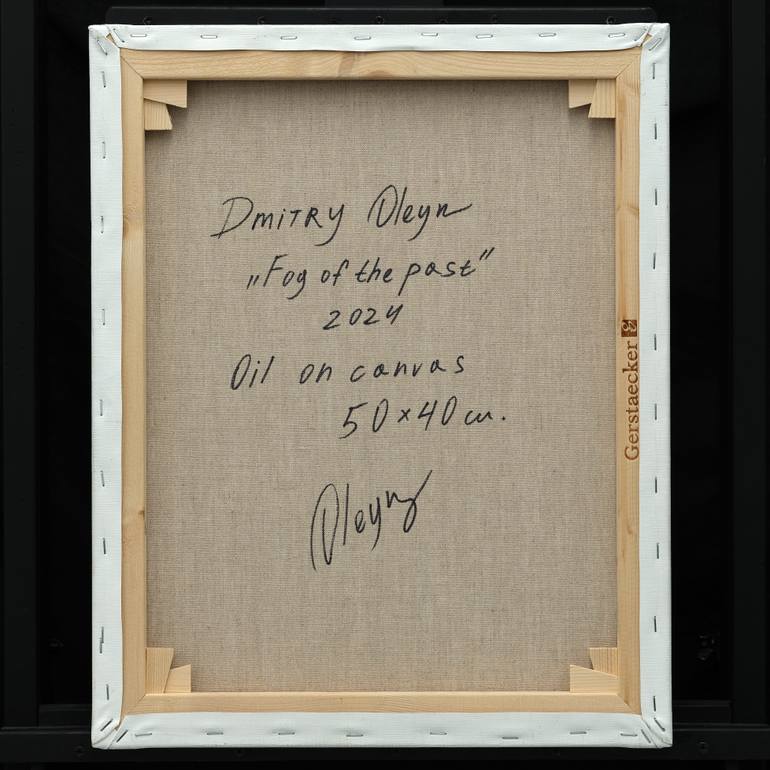 Dmitry Oleyn
„Fog of the past”
2024
Oil on canvas
50×40 cm.
Oleyn
Gerstaecker